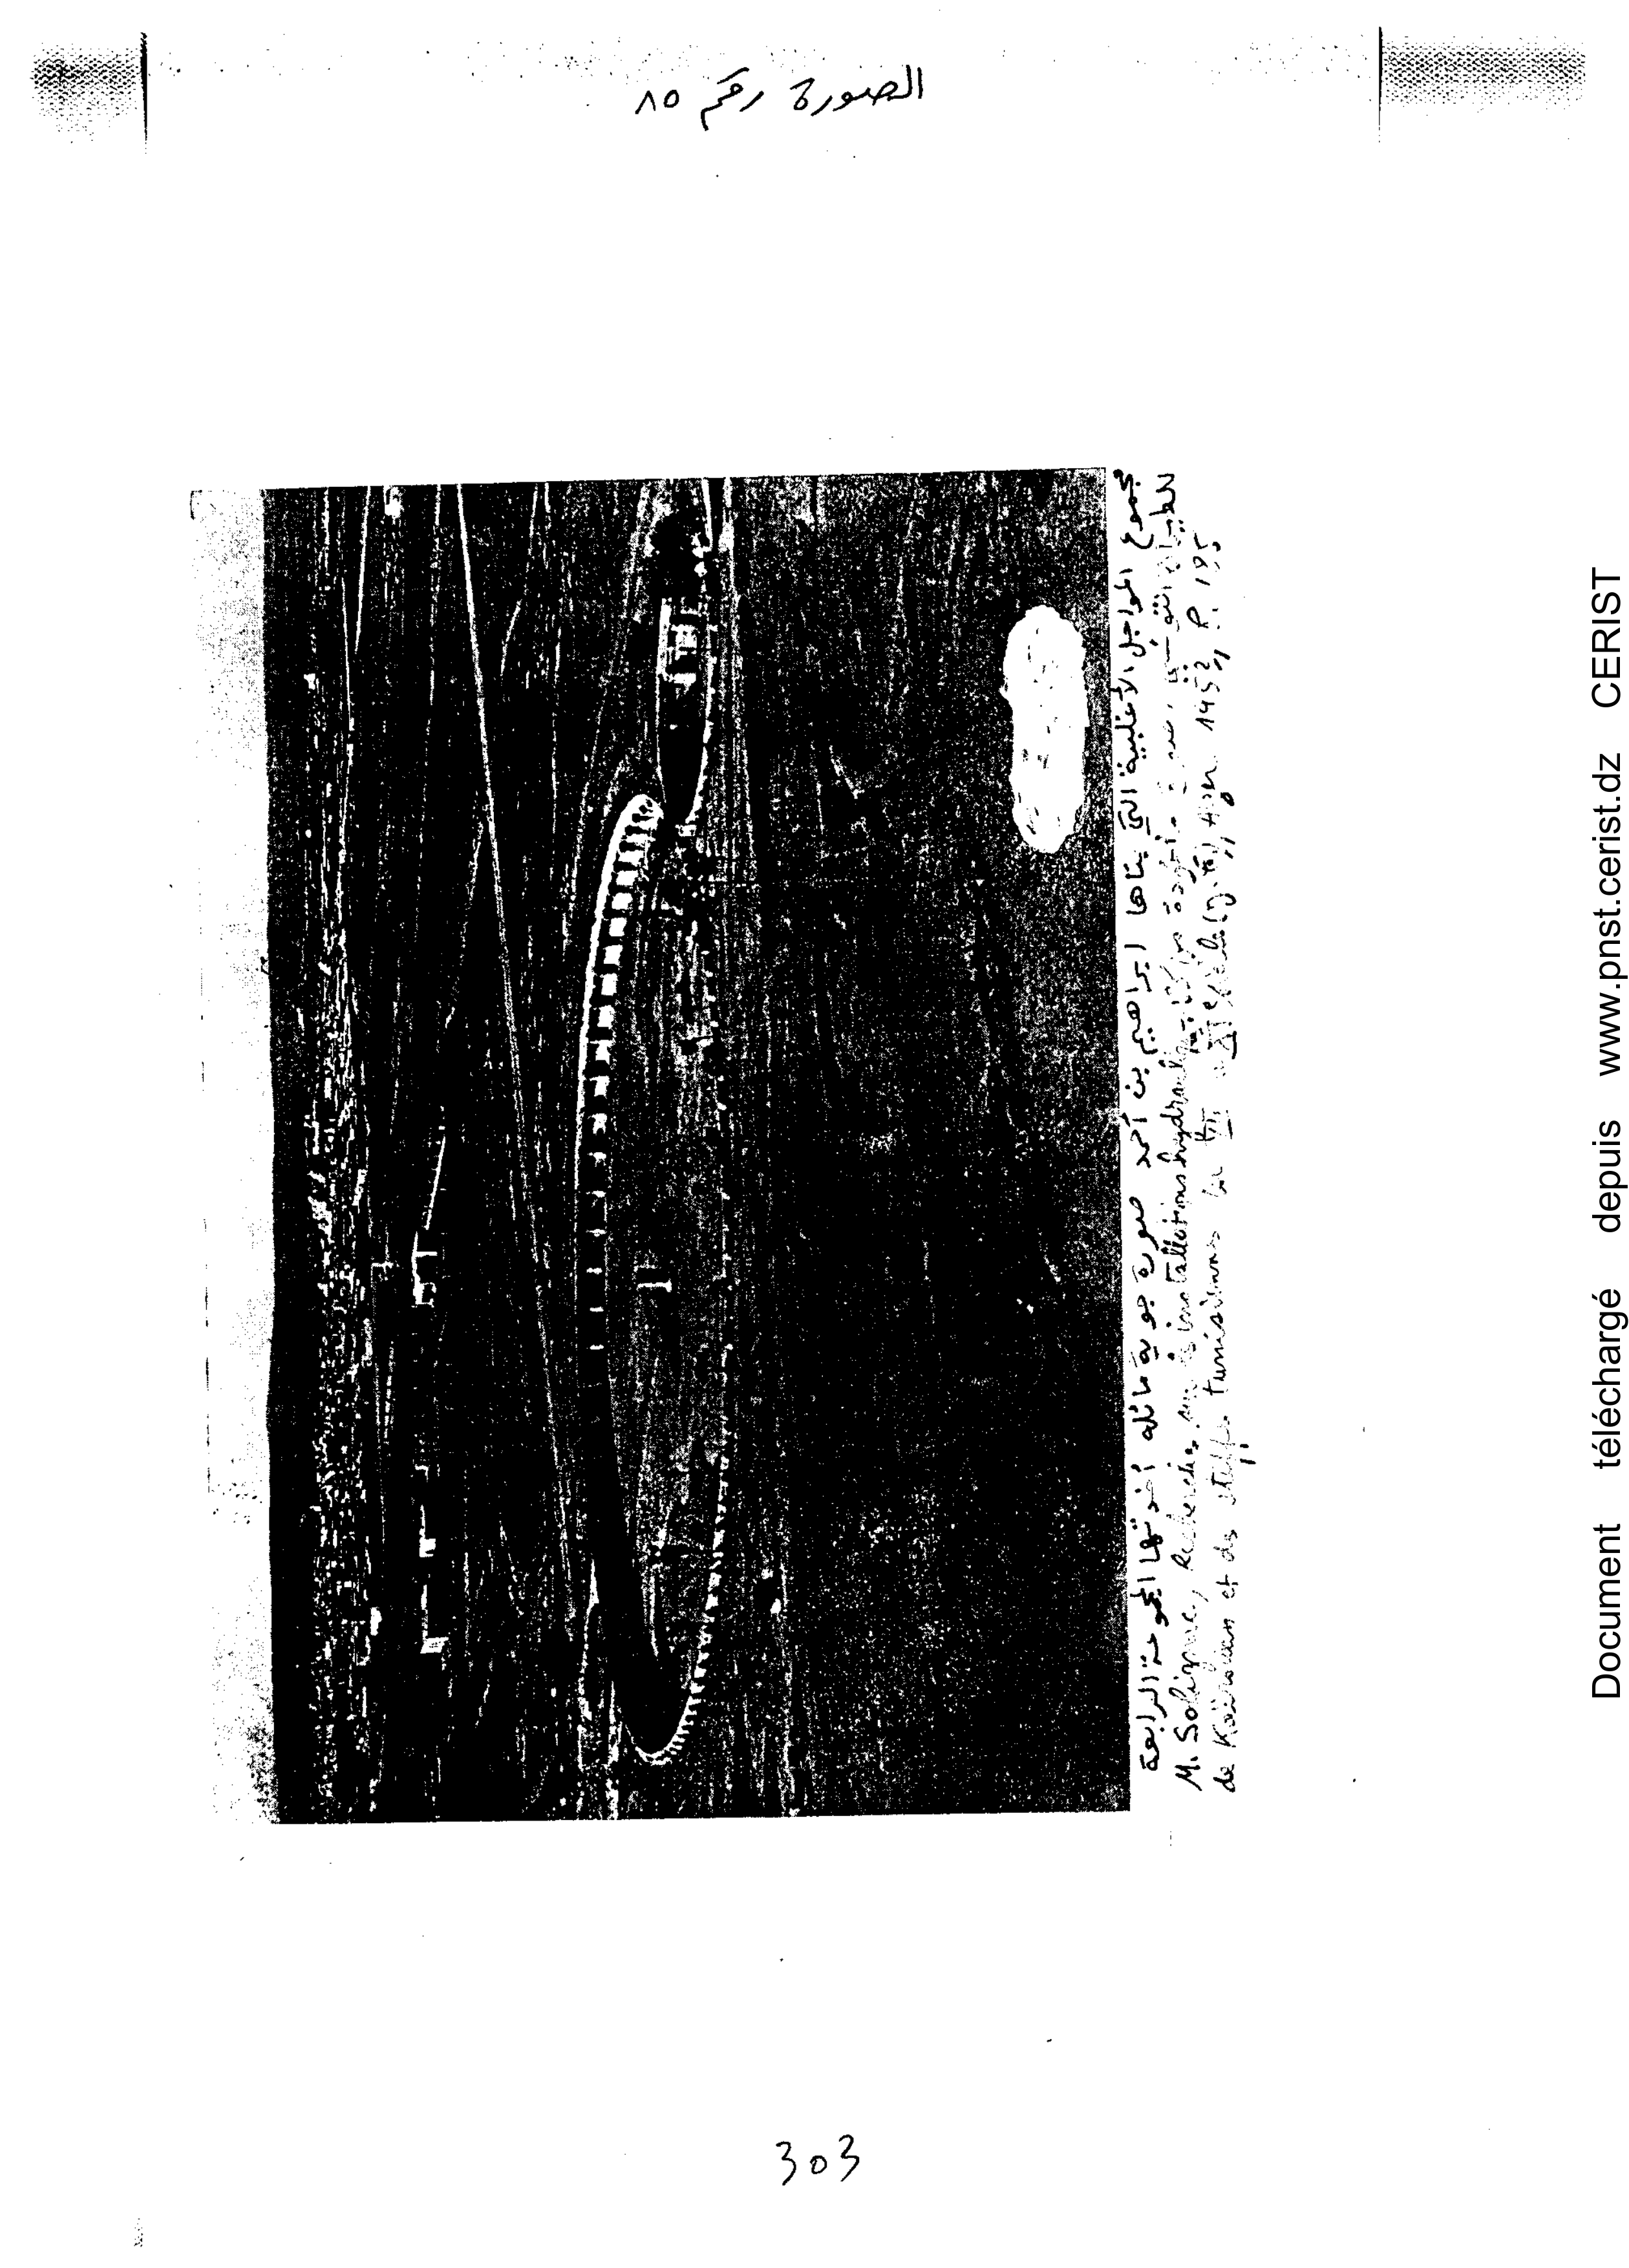 الصورة رقم ٨٥
مجموع المواجل الأغلبية التي بناها ابراهيم بن أحمد صورة جوية مائلة أخذتها المجموعة الرابعة
للطيران
M. Solignac, Recherches sur les installations hydrauliques
de Kairouan et des steppes tunisiennes du VII au XI siècle Alger 1953, P. 195
303
Document téléchargé depuis www.pnst.cerist.dz CERIST